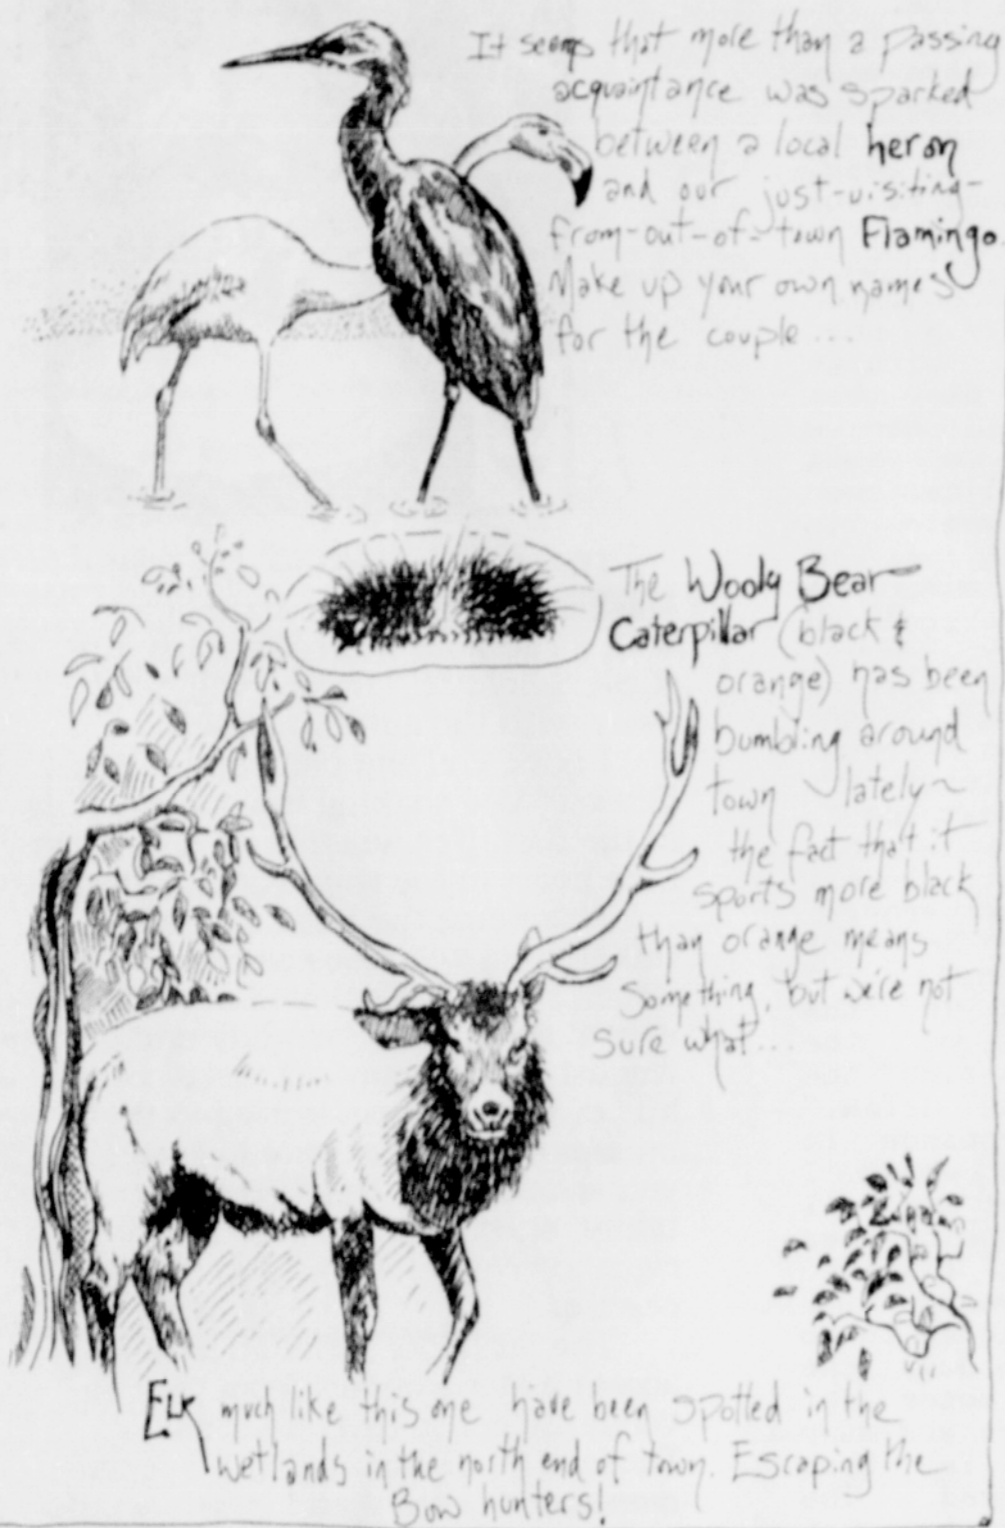 It seems that more than a passing
acquaintance was sparked
between a local heron
and our just-visiting-
from-out-of-town Flamingo.
Make up your own names
for the couple...
The Wooly Bear
Caterpillar (black &
orange) has been
bumbling around
town lately~
the fact that it
sports more black
than orange means
Something, but we're not
sure what...
Elk much like this one have been spotted in the
wetlands in the north end of town. Escaping the
Bow hunters!